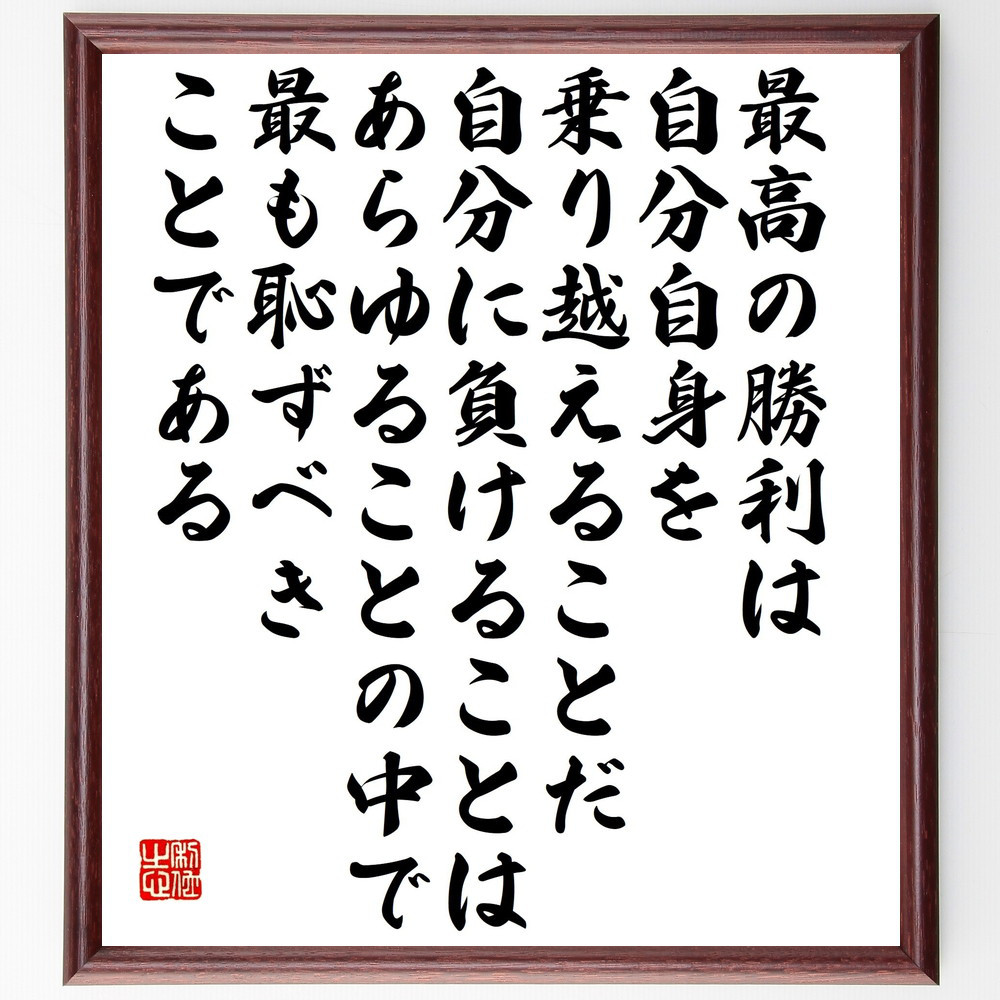 最高の勝利は
自分自身を
乗り越えることだ
自分に負けることは
あらゆることの中で
最も恥ずべき
ことである